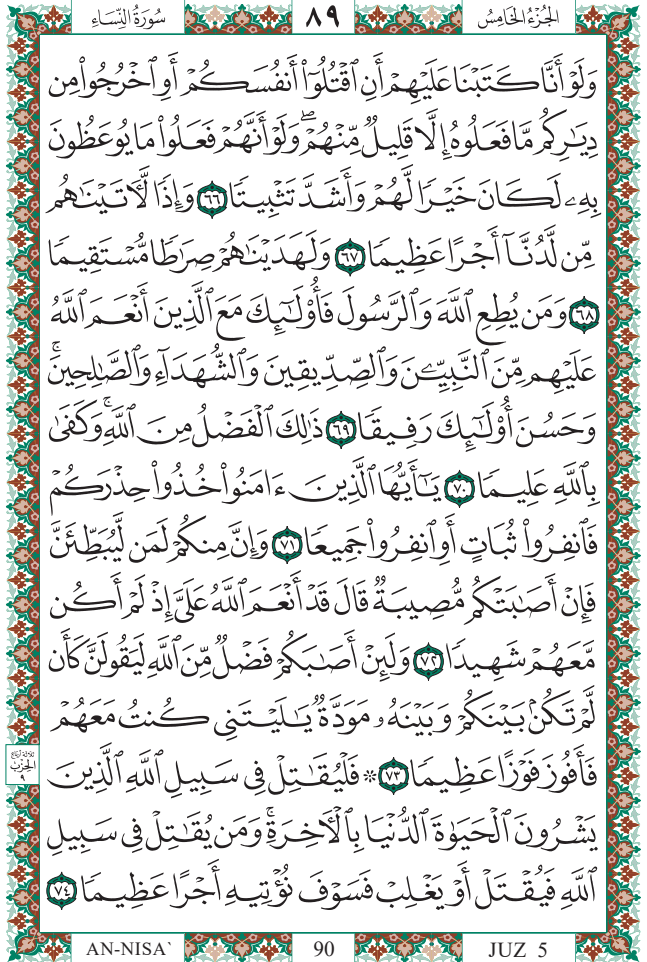 الجُزْءُ الخَامِسُ ٨٩ سُورَةُ النِّسَاءِ
وَلَوْ أَنَّا كَتَبْنَا عَلَيْهِمْ أَنِ ٱقْتُلُوٓا۟ أَنفُسَكُمْ أَوِ ٱخْرُجُوا۟ مِن
دِيَٰرِكُم مَّا فَعَلُوهُ إِلَّا قَلِيلٌ مِّنْهُمْ ۖ وَلَوْ أَنَّهُمْ فَعَلُوا۟ مَا يُوعَظُونَ
بِهِۦ لَكَانَ خَيْرًا لَّهُمْ وَأَشَدَّ تَثْبِيتًا ٦٦ وَإِذًا لَّءَاتَيْنَٰهُم
مِّن لَّدُنَّآ أَجْرًا عَظِيمًا ٦٧ وَلَهَدَيْنَٰهُمْ صِرَٰطًا مُّسْتَقِيمًا
٦٨ وَمَن يُطِعِ ٱللَّهَ وَٱلرَّسُولَ فَأُو۟لَٰٓئِكَ مَعَ ٱلَّذِينَ أَنْعَمَ ٱللَّهُ
عَلَيْهِم مِّنَ ٱلنَّبِيِّۦنَ وَٱلصِّدِّيقِينَ وَٱلشُّهَدَآءِ وَٱلصَّٰلِحِينَ ۚ
وَحَسُنَ أُو۟لَٰٓئِكَ رَفِيقًا ٦٩ ذَٰلِكَ ٱلْفَضْلُ مِنَ ٱللَّهِ ۚ وَكَفَىٰ
بِٱللَّهِ عَلِيمًا ٧٠ يَٰٓأَيُّهَا ٱلَّذِينَ ءَامَنُوا۟ خُذُوا۟ حِذْرَكُمْ
فَٱنفِرُوا۟ ثُبَاتٍ أَوِ ٱنفِرُوا۟ جَمِيعًا ٧١ وَإِنَّ مِنكُمْ لَمَن لَّيُبَطِّئَنَّ
فَإِنْ أَصَٰبَتْكُم مُّصِيبَةٌ قَالَ قَدْ أَنْعَمَ ٱللَّهُ عَلَىَّ إِذْ لَمْ أَكُن
مَّعَهُمْ شَهِيدًا ٧٢ وَلَئِنْ أَصَٰبَكُمْ فَضْلٌ مِّنَ ٱللَّهِ لَيَقُولَنَّ كَأَن
لَّمْ تَكُنۢ بَيْنَكُمْ وَبَيْنَهُۥ مَوَدَّةٌ يَٰلَيْتَنِى كُنتُ مَعَهُمْ
فَأَفُوزَ فَوْزًا عَظِيمًا ٧٣ ۞ فَلْيُقَٰتِلْ فِى سَبِيلِ ٱللَّهِ ٱلَّذِينَ
يَشْرُونَ ٱلْحَيَوٰةَ ٱلدُّنْيَا بِٱلْءَاخِرَةِ ۚ وَمَن يُقَٰتِلْ فِى سَبِيلِ
ٱللَّهِ فَيُقْتَلْ أَوْ يَغْلِبْ فَسَوْفَ نُؤْتِيهِ أَجْرًا عَظِيمًا ٧٤
ثلاثة أرباع
الحزب
٩
AN-NISA` 90 JUZ 5